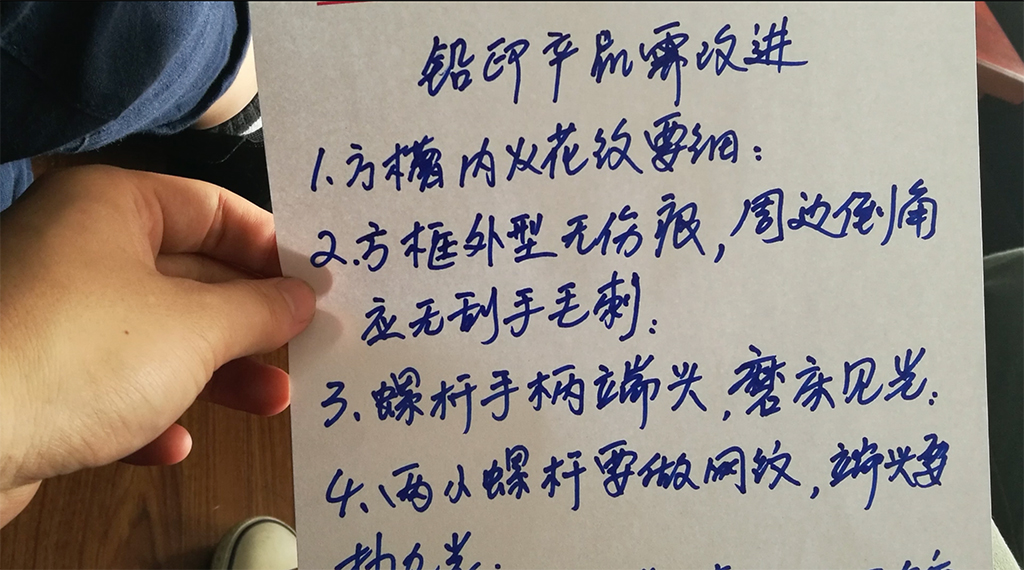 铅印平肌需改进
1.方槽内火花纹要细:
2.方框外型无伤痕,周边倒角
应无刮手毛刺:
3、螺杆手柄立端头,磨床见光:
4、两小螺杆要做网纹,端头要